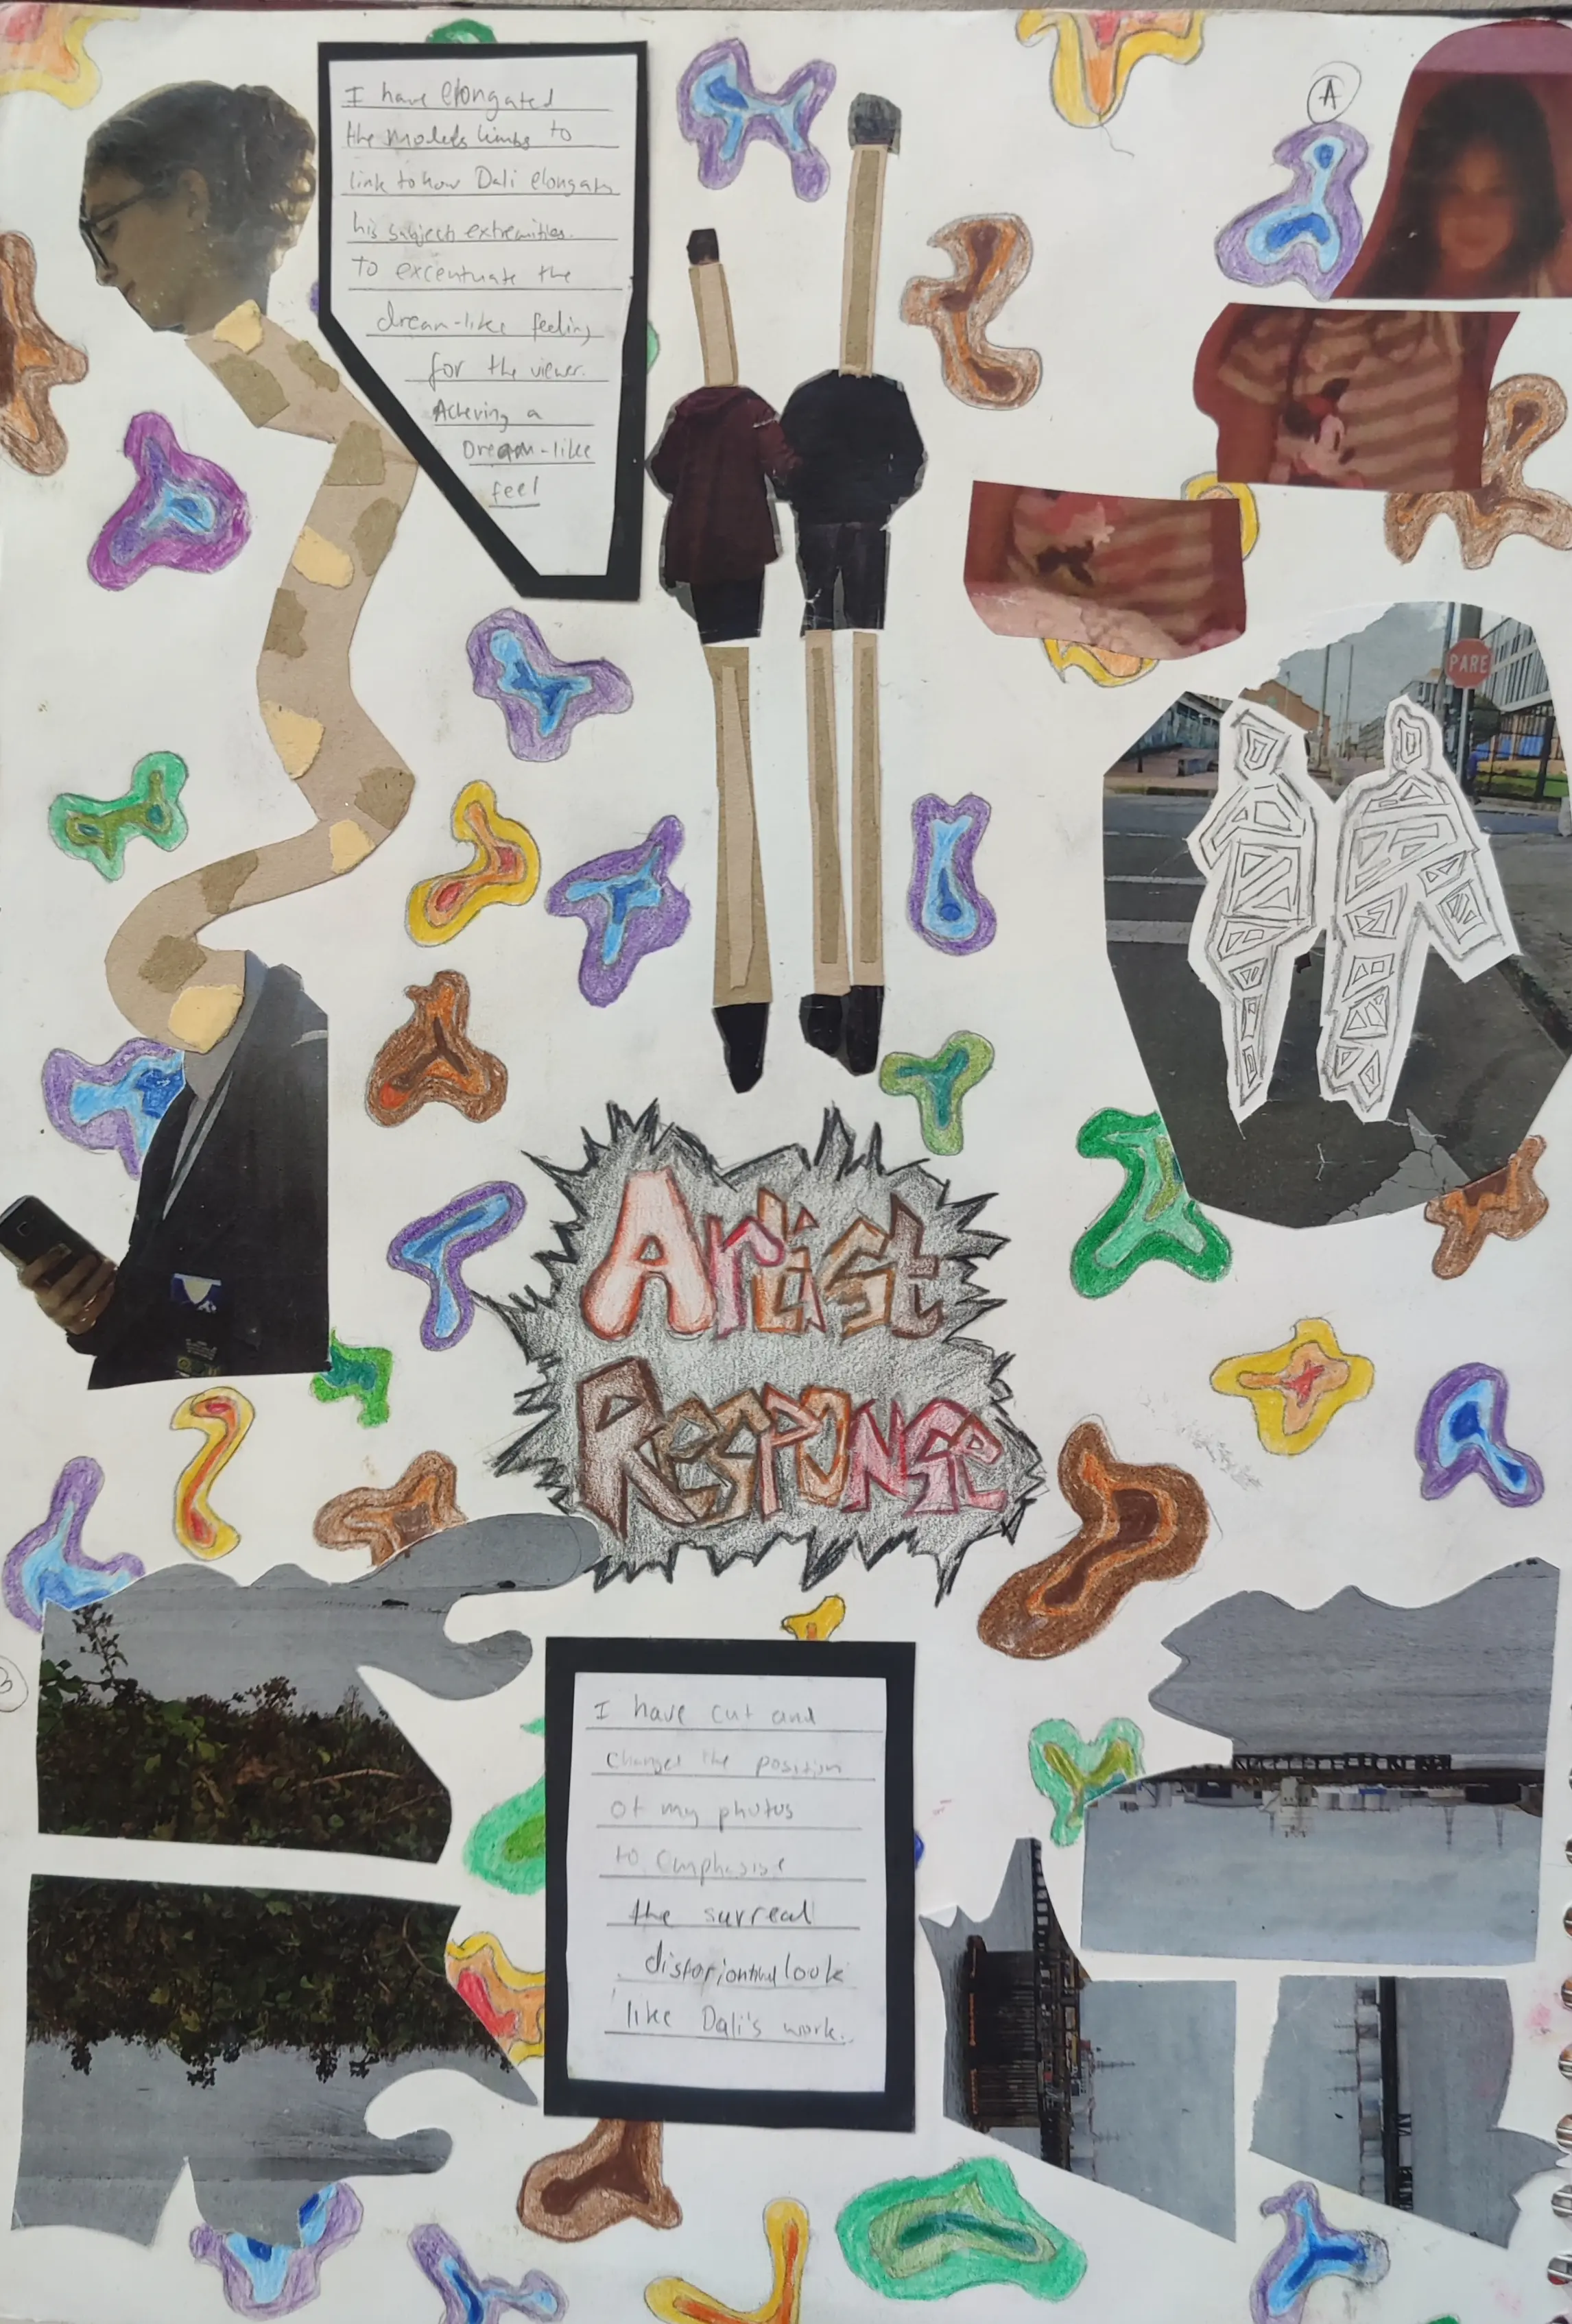 I have elongated
the models limbs to
link to how Dali elongats
his subject extremities.
To excentuate the
dream-like feeling
for the viewer.
Acheving a
Dream-like
feel
A
PARE
Artist
Response
I have cut and
changed the position
of my photos
to emphasise
the surreal
look
like Dali's work.
B